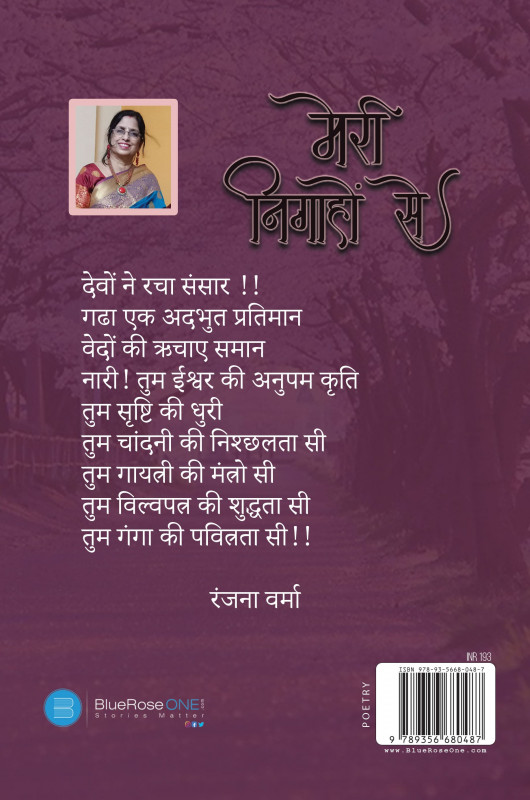 मेरी
निगाहों से
देवों ने रचा संसार !!
गढा एक अदभुत प्रतिमान
वेदों की ऋचाए समान
नारी! तुम ईश्वर की अनुपम कृति
तुम सृष्टि की धुरी
तुम चांदनी की निश्छलता सी
तुम गायत्री की मंत्रो सी
तुम विल्वपत्र की शुद्धता सी
तुम गंगा की पवित्रता सी!!
रंजना वर्मा
BlueRoseONE.com
Stories Matter
POETRY
INR 193
ISBN 978-93-5668-048-7
9 789356 680487
www.BlueRoseOne.com